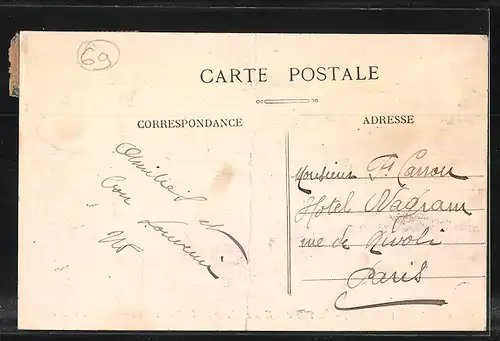 69
CARTE POSTALE
CORRESPONDANCE
ADRESSE
Amitiés et
bon Souvenir
Monsieur F. Carron
Hôtel Wagram
rue de Rivoli
Paris